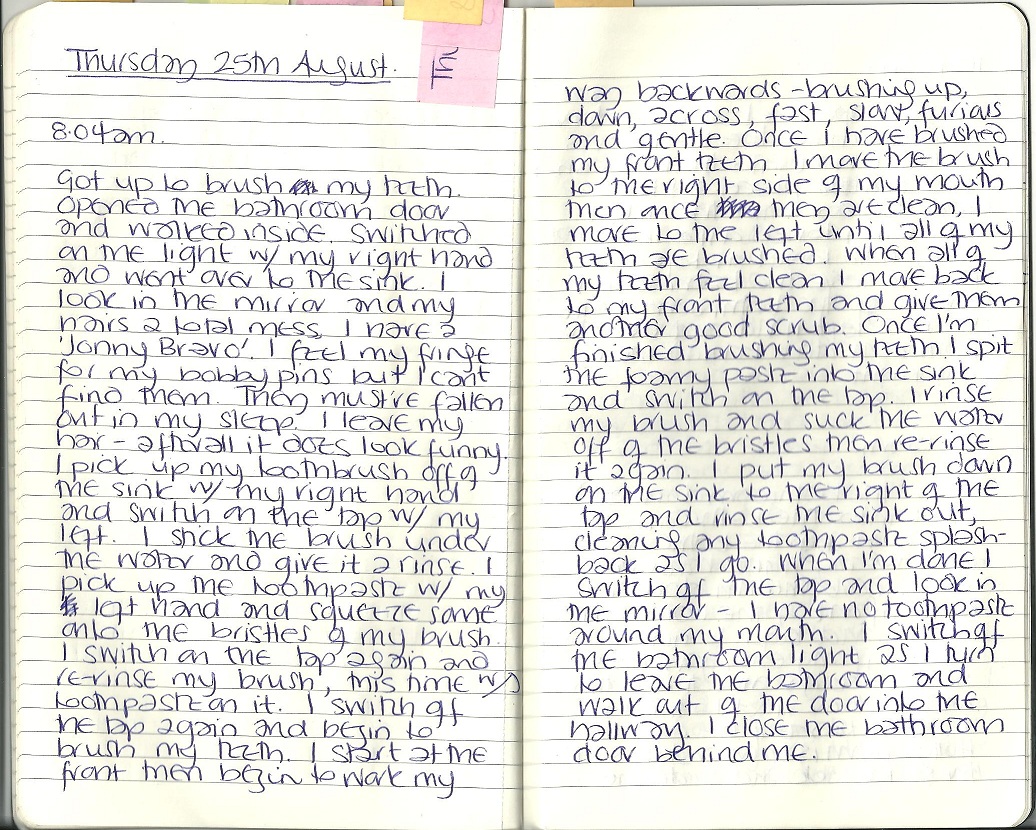 Thursday 25th August.
Th
8.04am.
Got up to brush my teeth.
Opened the bathroom door
and walked inside. Switched
on the light w/ my right hand
and went over to the sink. I
look in the mirror and my
hairs a total mess, I have a
'Jonny Bravo'. I feel my fringe
for my bobby pins but I cant
find them. They must've fallen
out in my sleep. I leave my
hair - afterall it does look funny.
I pick up my toothbrush off of
the sink w/ my right hand
and switch on the tap w/ my
left. I stick the brush under
the water and give it a rinse. I
pick up the toothpaste w/ my
left hand and squeeze some
onto the bristles of my brush.
I switch on the tap again and
re-rinse my brush, this time w/
toothpaste on it. I switch off
the tap again and begin to
brush my teeth. I start at the
front then begin to work my
way backwards - brushing up,
down, across, fast, slow, furious
and gentle. Once I have brushed
my front teeth I move the brush
to the right side of my mouth
then once they are clean, I
move to the left until all of my
teeth are brushed. When all of
my teeth feel clean I move back
to my front teeth and give them
another good scrub. Once I'm
finished brushing my teeth I spit
the foamy paste into the sink
and switch on the tap. I rinse
my brush and suck the water
off of the bristles then re-rinse
it again. I put my brush down
on the sink to the right of the
tap and rinse the sink out,
cleaning any toothpaste splash-
back as I go. When I'm done I
switch off the tap and look in
the mirror - I have no toothpaste
around my mouth. I switch off
the bathroom light as I turn
to leave the bathroom and
walk out of the door into the
hallway. I close the bathroom
door behind me.